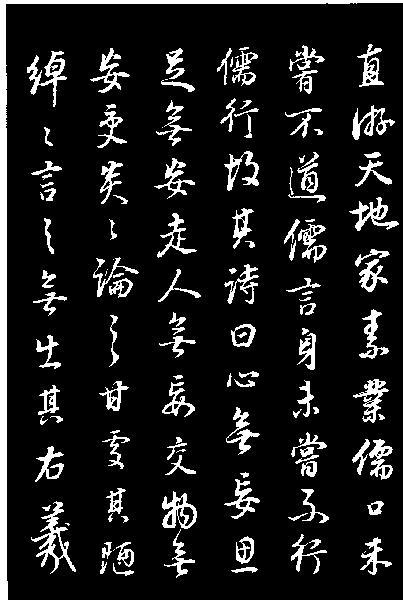 直游天地家素業儒口未
嘗不道儒言身未嘗不行
儒行故其詩曰心無妄思
足無妄走人無妄交物無
妄受炎〻論之甘處其陋
綽〻言之無出其右羲